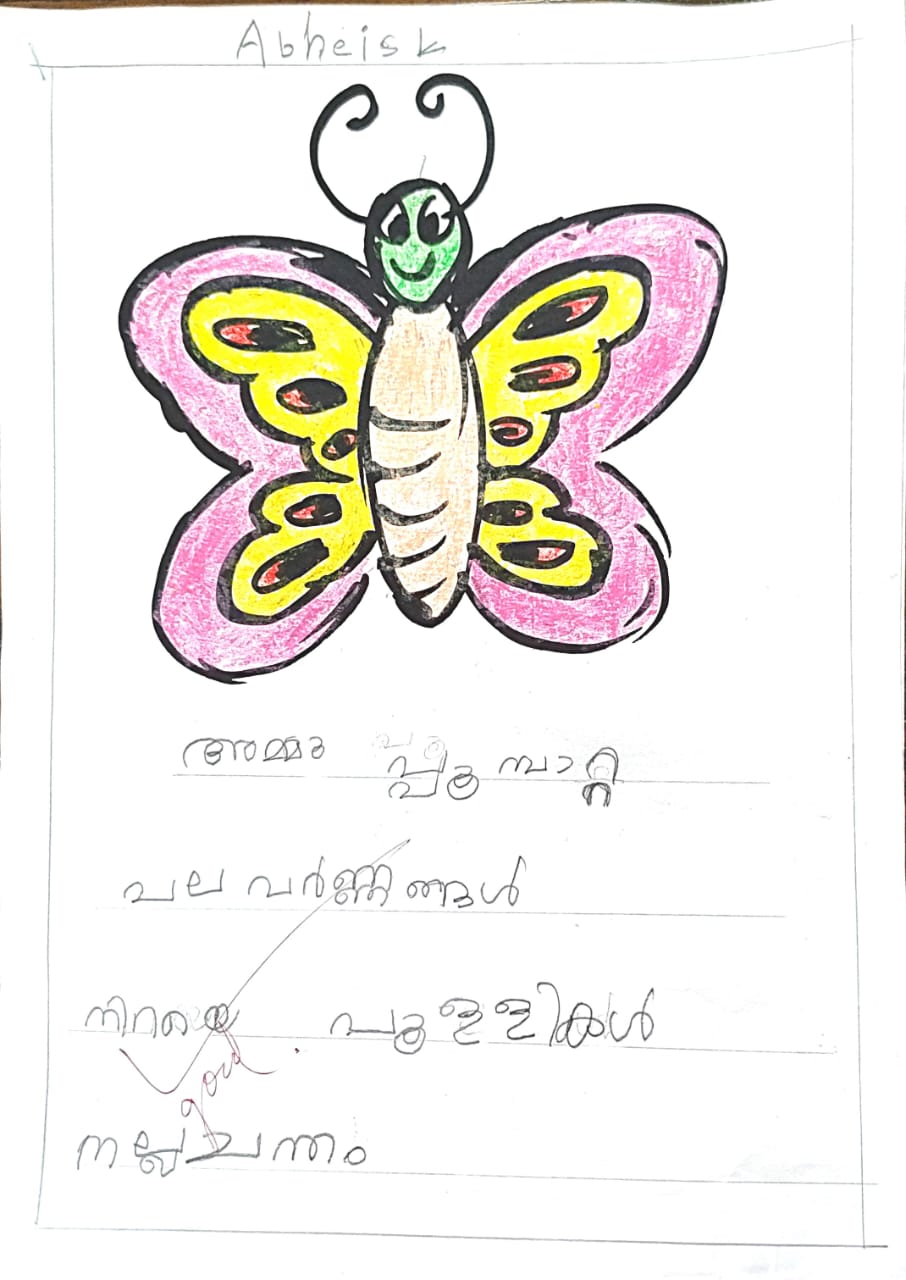 Abheisk
അമ്മു പൂമ്പാറ്റ
പല വർണ്ണങ്ങൾ
നിറയെ പുള്ളികൾ
good
നല്ല ചന്തം